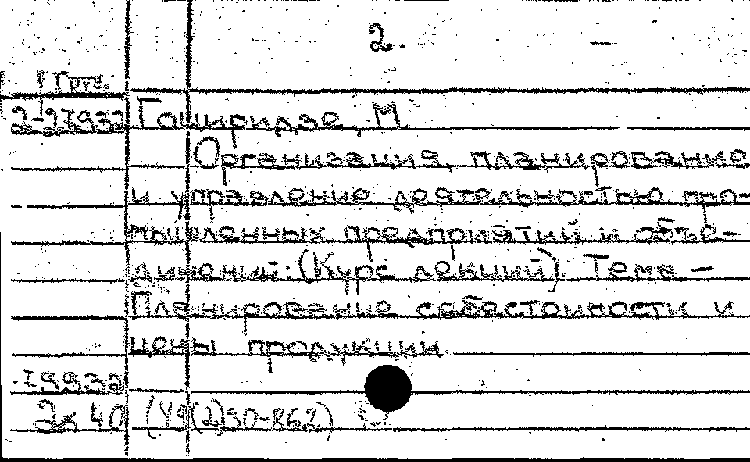 2. —
Груз.
2-27932 Гоширидзе, М.
Организация, планирование
и управление деятельностью про-
мышленных предприятий и объе-
динений: (Курс лекций). Тема —
Планирование себестоимости и
цены продукции
19932
2к 40 (У9(2)30-862)